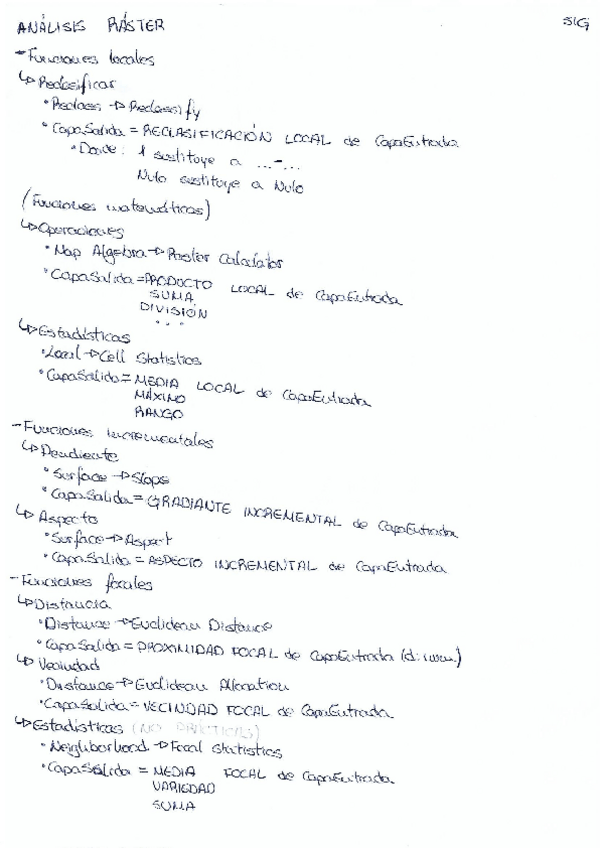 ANÁLISIS RÁSTER
SIG
- Funciones locales
↳ Reclasificar
• Reclass → Reclassify
• CapaSalida = RECLASIFICACIÓN LOCAL de CapaEntrada
• Donde: 1 sustituye a ...-...
Nulo sustituye a Nulo
(Funciones matemáticas)
↳ Operaciones
• Map Algebra → Raster Calculator
• CapaSalida = PRODUCTO LOCAL de CapaEntrada
SUMA
DIVISIÓN
...
↳ Estadísticas
• Local → Cell Statistics
• CapaSalida = MEDIA LOCAL de CapaEntrada
MÁXIMO
RANGO
- Funciones incrementales
↳ Pendiente
• Surface → Slope
• CapaSalida = GRADIANTE INCREMENTAL de CapaEntrada
↳ Aspecto
• Surface → Aspect
• CapaSalida = ASPECTO INCREMENTAL de CapaEntrada
- Funciones focales
↳ Distancia
• Distance → Euclidean Distance
• CapaSalida = PROXIMIDAD FOCAL de CapaEntrada
↳ Vecindad
• Distance → Euclidean Allocation
• CapaSalida = VECINDAD FOCAL de CapaEntrada
↳ Estadísticas (NO PRÁCTICAS)
• Neighborhood → Focal Statistics
• CapaSalida = MEDIA FOCAL de CapaEntrada
VARIEDAD
SUMA